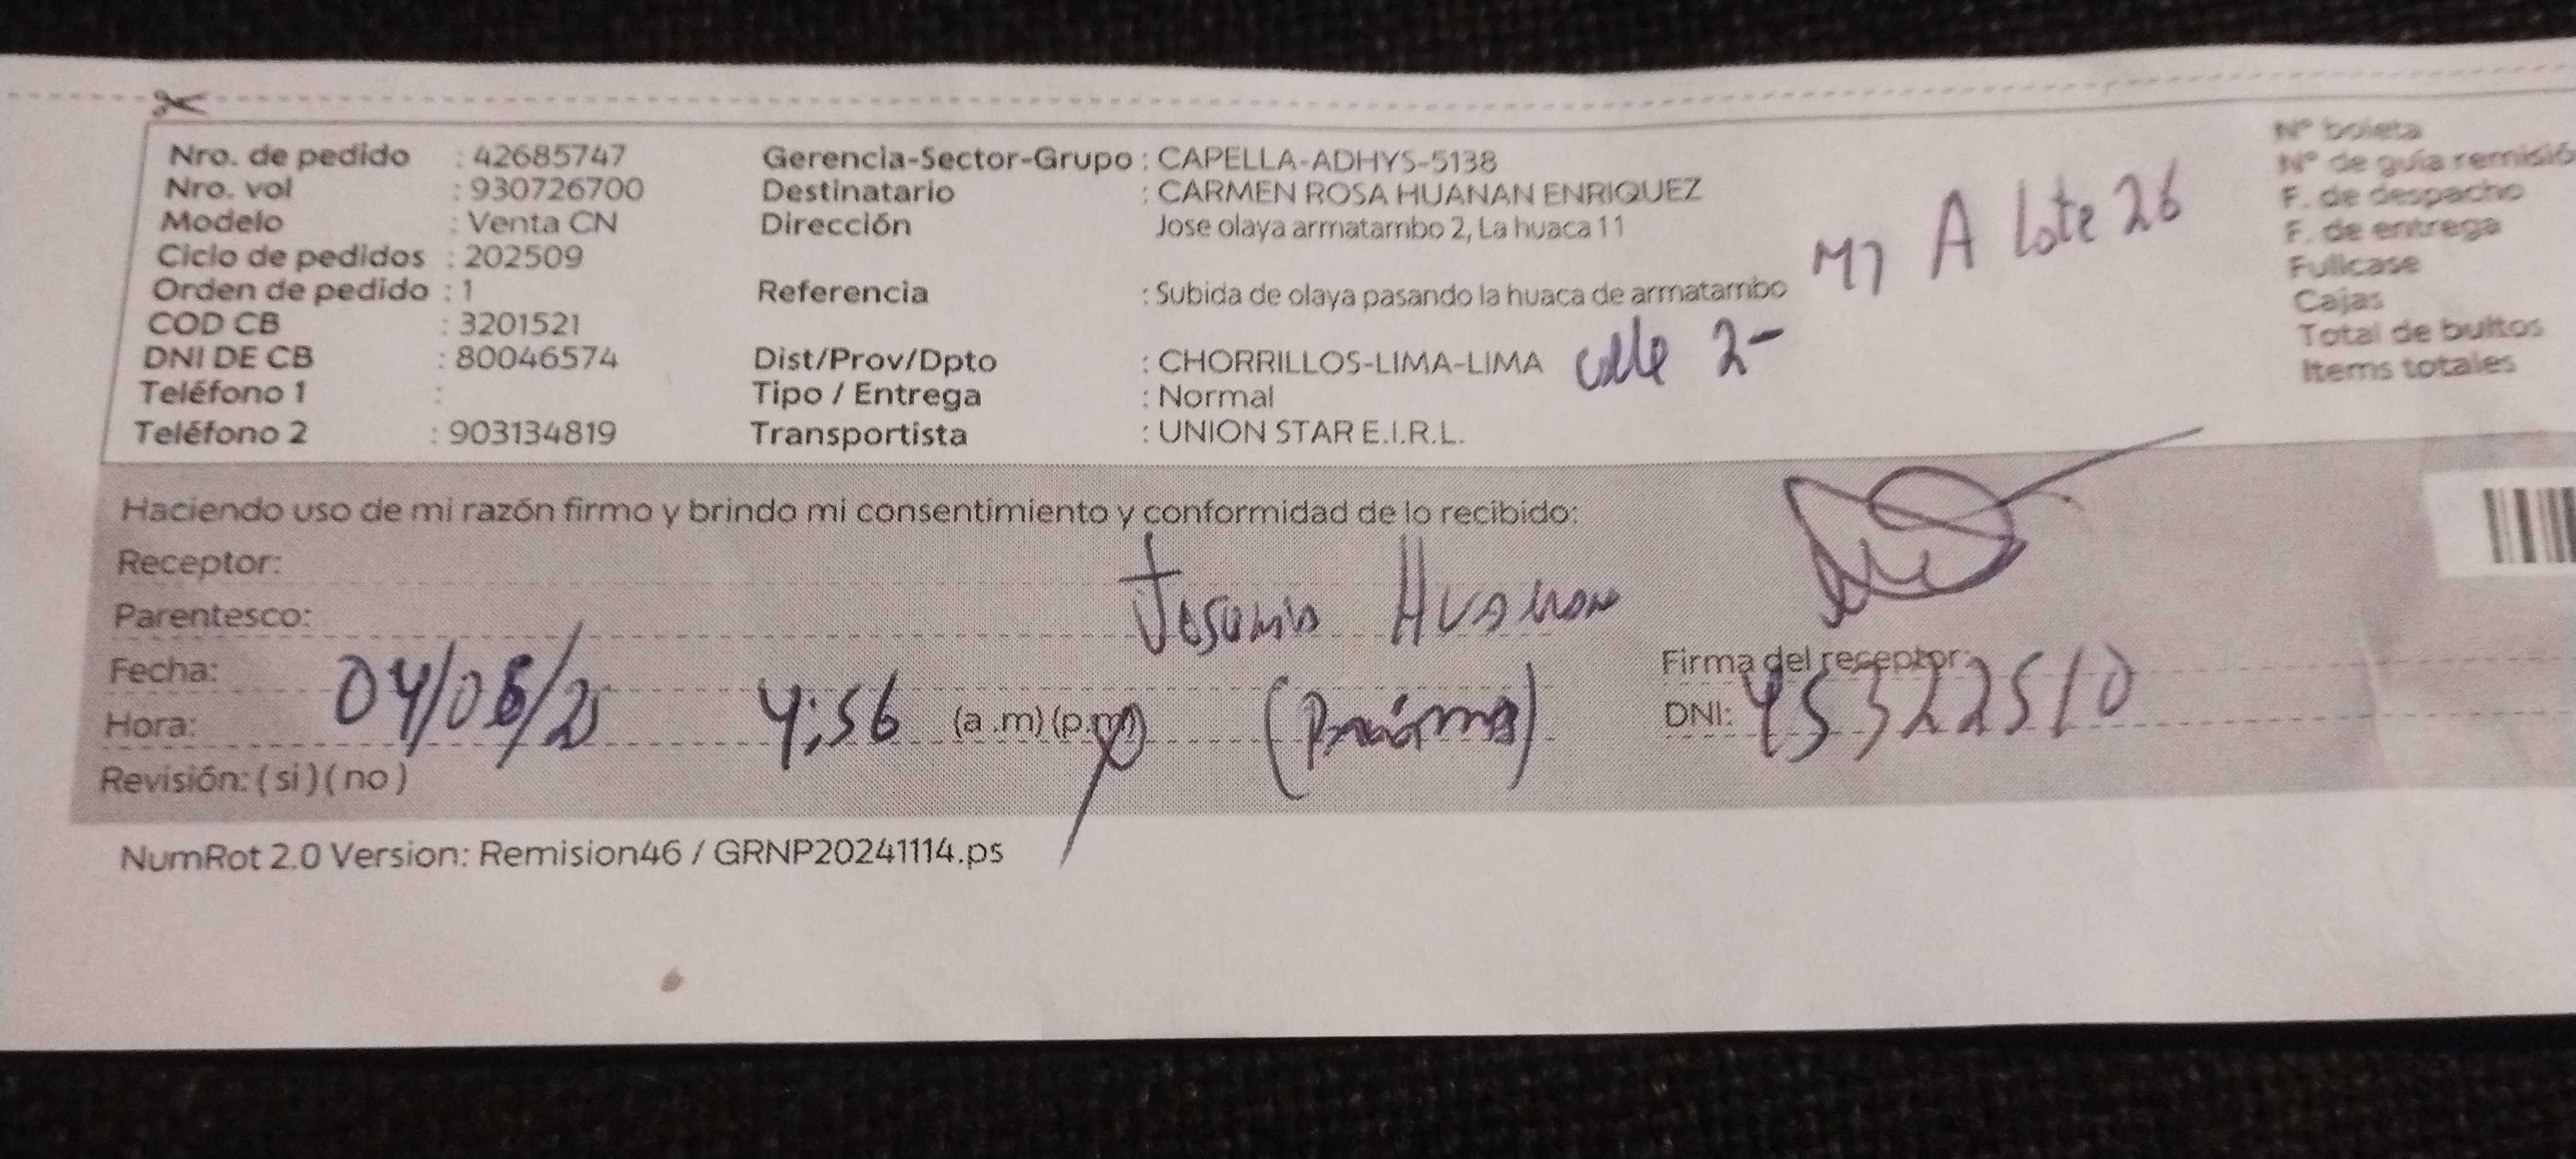 Nro. de pedido : 42685747 Gerencia-Sector-Grupo : CAPELLA-ADHYS-5138 N° boleta
Nro. vol : 930726700 Destinatario : CARMEN ROSA HUANAN ENRIQUEZ N° de guía remisió
Modelo : Venta CN Dirección Jose olaya armatambo 2, La huaca 11 F. de despacho
Ciclo de pedidos : 202509 Mz A lote 26 F. de entrega
Orden de pedido : 1 Referencia : Subida de olaya pasando la huaca de armatambo Fullcase
COD CB : 3201521 Cajas
DNI DE CB : 80046574 Dist/Prov/Dpto : CHORRILLOS-LIMA-LIMA calle 2- Total de bultos
Teléfono 1 : Tipo / Entrega : Normal Items totales
Teléfono 2 : 903134819 Transportista : UNION STAR E.I.R.L.
Haciendo uso de mi razón firmo y brindo mi consentimiento y conformidad de lo recibido:
Receptor:
Parentesco: Huanan
Fecha: 04/06/25 Firma del receptor:
Hora: 4:56 (a.m) (p.m) DNI: 45322510
Revisión: ( si ) ( no )
NumRot 2.0 Version: Remision46 / GRNP20241114.ps